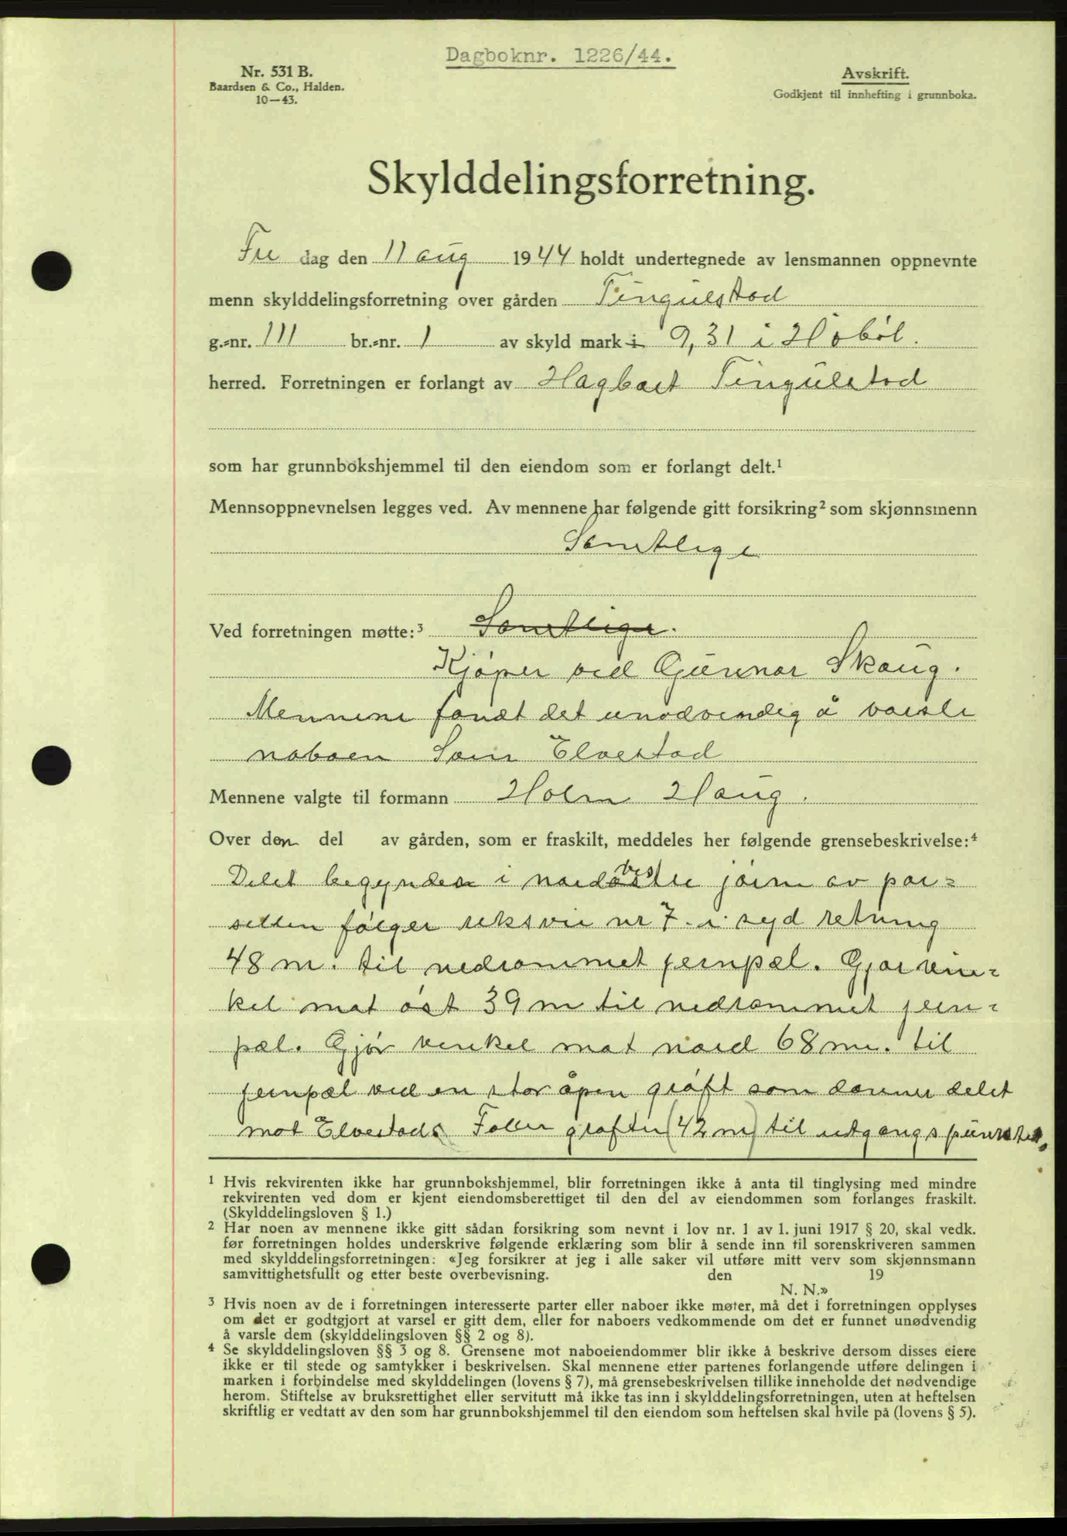 Dagboknr. 1226/44.
Nr. 531 B.
Baardsen & Co., Halden.
10—43.
Avskrift.
Godkjent til innhefting i grunnboka.
Skylddelingsforretning.
Fre dag den 11 aug 1944 holdt undertegnede av lensmannen oppnevnte
menn skylddelingsforretning over gården Tingulstad
g.-nr. 111 br.-nr. 1 av skyld mark i 9,31 i Hobøl.
herred. Forretningen er forlangt av Hagbart Tingulstad
som har grunnbokshjemmel til den eiendom som er forlangt delt.¹
Mennsoppnevnelsen legges ved. Av mennene har følgende gitt forsikring² som skjønnsmenn
Samtlige
Ved forretningen møtte:³ Samtlige.
Kjøper ved Gunnar Skaug.
Mennene fandt det unødvendig å varsle
naboen Elvestad
Mennene valgte til formann Holm Haug.
Over den del av gården, som er fraskilt, meddeles her følgende grensebeskrivelse:⁴
Delet begynder i nordvestre jörne av par=
sellen følger riksvei nr 7 i syd retning
48 m. til nedrammet jernpæl. Gjør vin=
kel mot øst 39 m til nedrammet jern=
pæl. Gjør vinkel mot nord 68 m. til
jernpæl ved en stor åpen grøft som danner delet
mot Elvestad. Følger grøften (42 m) til utgangspunktet.
¹ Hvis rekvirenten ikke har grunnbokshjemmel, blir forretningen ikke å anta til tinglysing med mindre
rekvirenten ved dom er kjent eiendomsberettiget til den del av eiendommen som forlanges fraskilt.
(Skylddelingsloven § 1.)
² Har noen av mennene ikke gitt sådan forsikring som nevnt i lov nr. 1 av 1. juni 1917 § 20, skal vedk.
før forretningen holdes underskrive følgende erklæring som blir å sende inn til sorenskriveren sammen
med skylddelingsforretningen: «Jeg forsikrer at jeg i alle saker vil utføre mitt verv som skjønnsmann
samvittighetsfullt og etter beste overbevisning. den 19
N. N.»
³ Hvis noen av de i forretningen interesserte parter eller naboer ikke møter, må det i forretningen opplyses
om det er godtgjort at varsel er gitt dem, eller for naboers vedkommende om det er funnet unødvendig
å varsle dem (skylddelingsloven §§ 2 og 8).
⁴ Se skylddelingsloven §§ 3 og 8. Grensene mot naboeiendommer blir ikke å beskrive dersom disses eiere
ikke er til stede og samtykker i beskrivelsen. Skal mennene etter partenes forlangende utføre delingen i
marken i forbindelse med skylddelingen (lovens § 7), må grensebeskrivelsen tillike inneholde det nødvendige
herom. Stiftelse av bruksrettighet eller servitutt må ikke tas inn i skylddelingsforretningen, uten at heftelsen
skriftlig er vedtatt av den som har grunnbokshjemmel til den eiendom som heftelsen skal hvile på (lovens § 5).